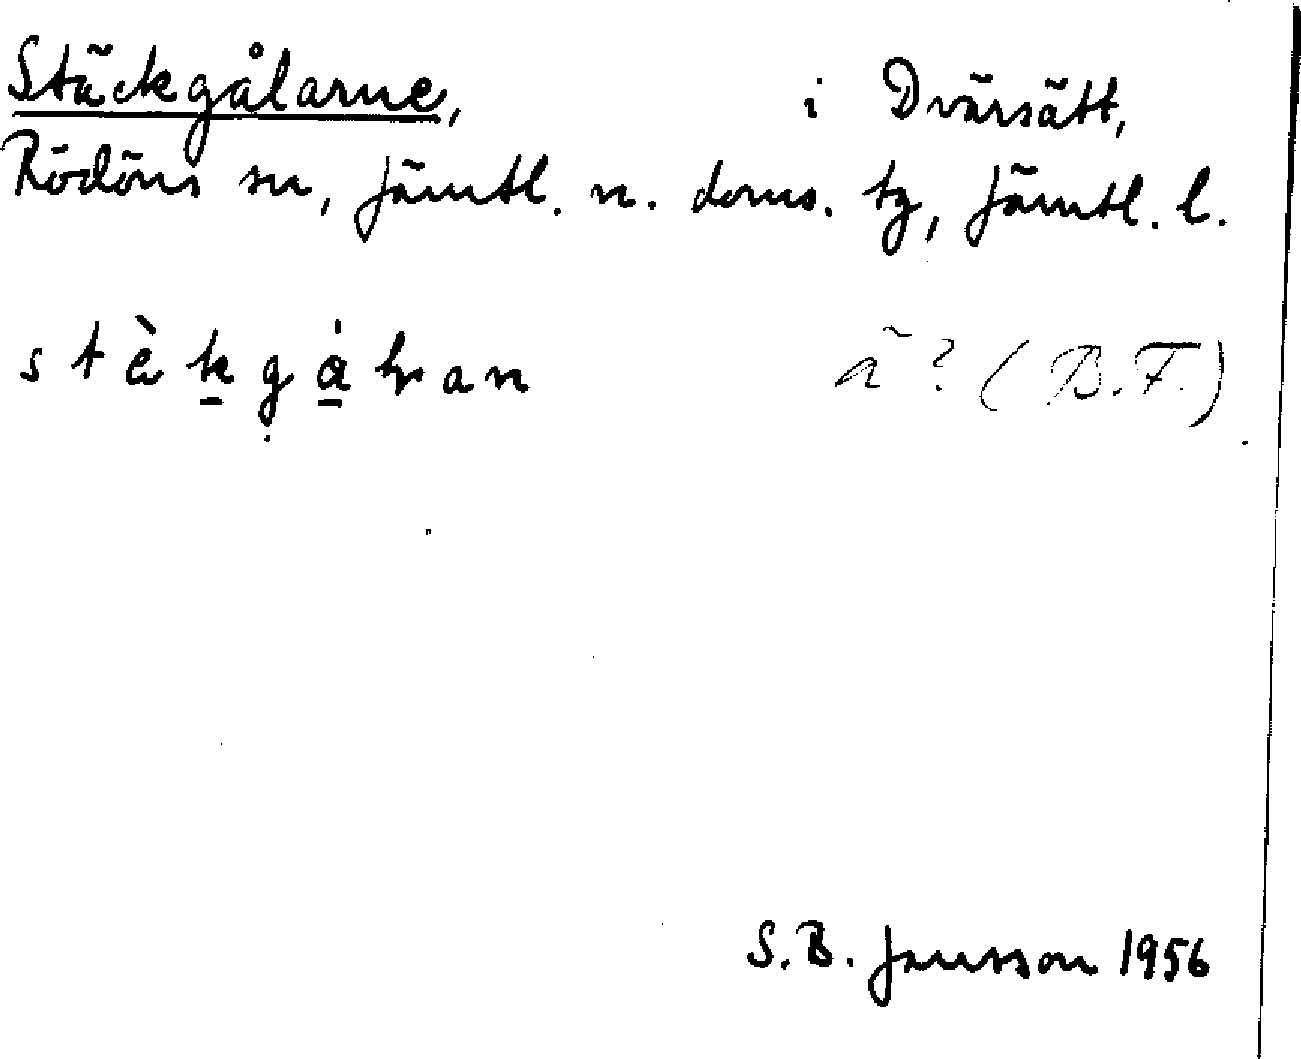 Stäckgålarne, i Dvärsätt,
Rödöns sn, Jämtl. n. doms. tg, Jämtl. l.
ä? (B.F.)
S.B. Jansson 1956